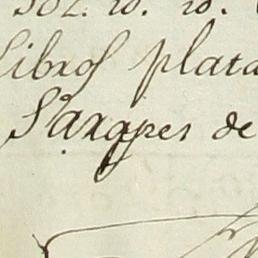 libros plata
Sarapes de